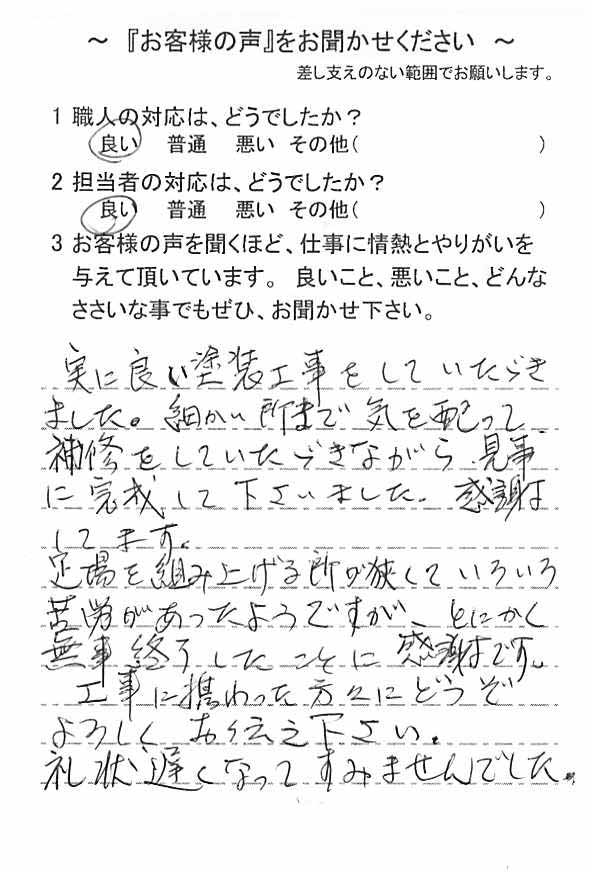 ～『お客様の声』をお聞かせください ～
差し支えのない範囲でお願いします。
1 職人の対応は、どうでしたか？
良い 普通 悪い その他( )
2 担当者の対応は、どうでしたか？
良い 普通 悪い その他( )
3 お客様の声を聞くほど、仕事に情熱とやりがいを
与えて頂いています。 良いこと、悪いこと、どんな
ささいな事でもぜひ、お聞かせ下さい。
実に良い塗装工事をしていただき
ました。細かい所まで気を配って
補修をしていただきながら、見事
に完成して下さいました。感謝は
してます。
足場を組み上げる所が狭くていろいろ
苦労があったようですが、とにかく
無事終了したことに感謝です。
工事に携わった方々にどうぞ
よろしくお伝え下さい。
礼状遅くなってすみませんでした。